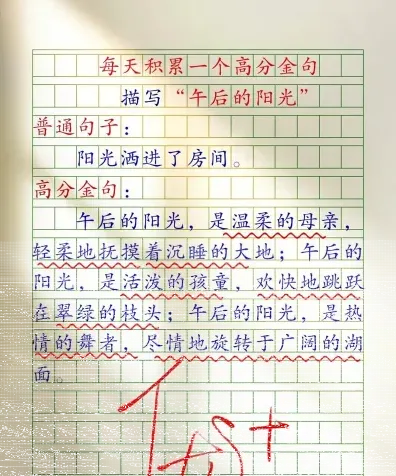 每天积累一个高分金句
描写“午后的阳光”
普通句子：
阳光洒进了房间。
高分金句：
午后的阳光，是温柔的母亲，
轻柔地抚摸着沉睡的大地；午后的
阳光，是活泼的孩童，欢快地跳跃
在翠绿的枝头；午后的阳光，是热
情的舞者，尽情地旋转于广阔的湖
面。